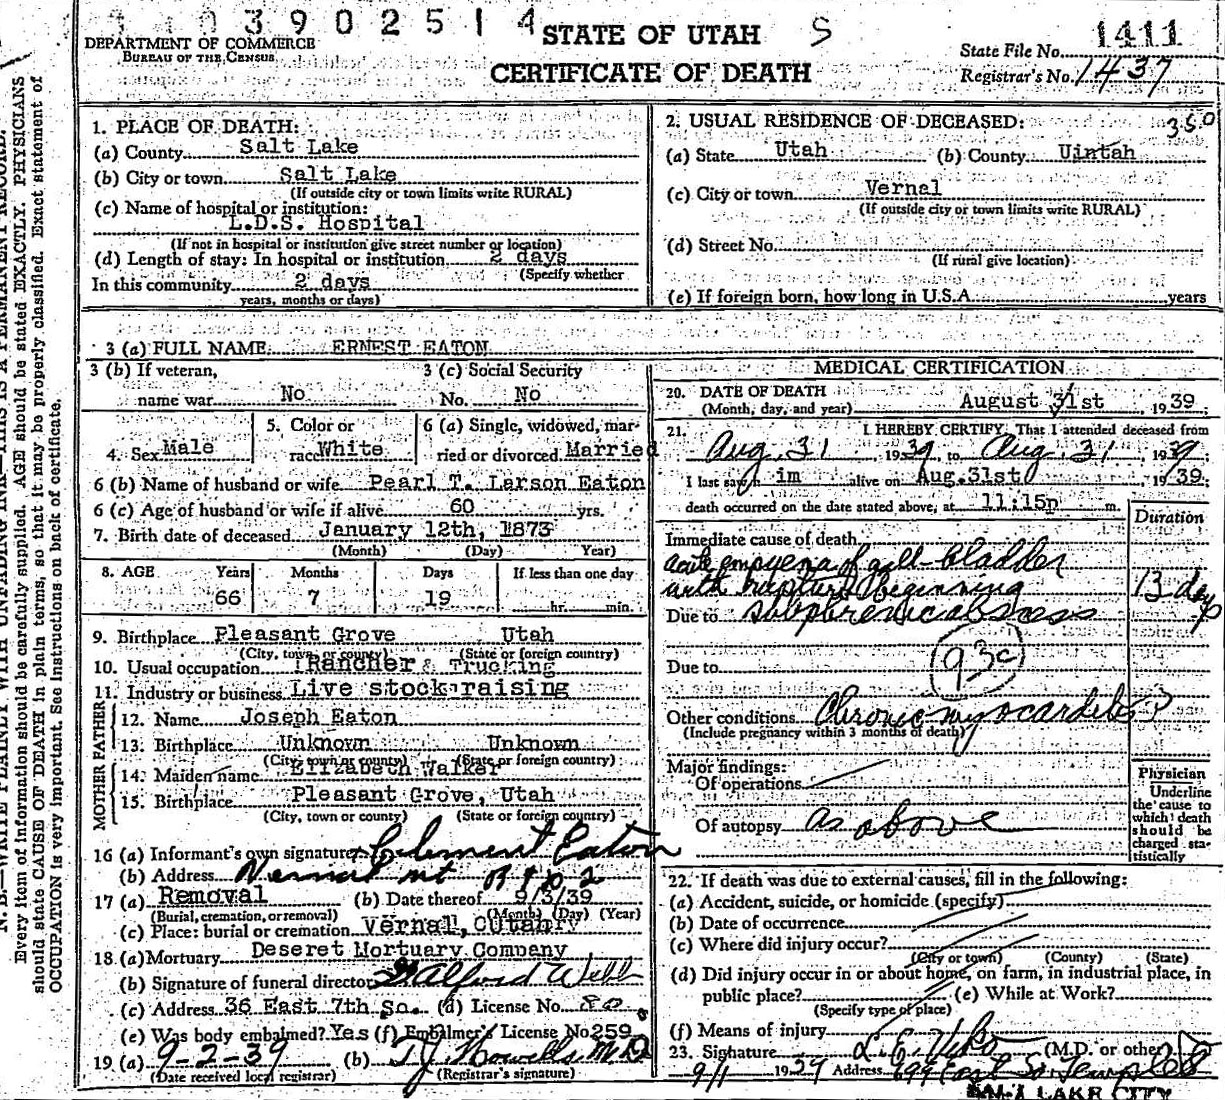 3902514 STATE OF UTAH S
DEPARTMENT OF COMMERCE
BUREAU OF THE CENSUS
CERTIFICATE OF DEATH
State File No. 1411
Registrar's No. 1437
N. B.—WRITE PLAINLY WITH UNFADING INK—THIS IS A PERMANENT RECORD.
Every item of information should be carefully supplied. AGE should be stated EXACTLY. PHYSICIANS
should state CAUSE OF DEATH in plain terms, so that it may be properly classified. Exact statement of
OCCUPATION is very important. See instructions on back of certificate.
1. PLACE OF DEATH:
(a) County Salt Lake
(b) City or town Salt Lake
(If outside city or town limits write RURAL)
(c) Name of hospital or institution:
L.D.S. Hospital
(If not in hospital or institution give street number or location)
(d) Length of stay: In hospital or institution 2 days
(Specify whether
In this community 2 days
years, months or days)
2. USUAL RESIDENCE OF DECEASED: 350
(a) State Utah (b) County Uintah
(c) City or town Vernal
(If outside city or town limits write RURAL)
(d) Street No.
(If rural give location)
(e) If foreign born, how long in U.S.A. years
3 (a) FULL NAME ERNEST EATON
3 (b) If veteran,
name war No
3 (c) Social Security
No. No
4. Sex Male
5. Color or
race White
6 (a) Single, widowed, mar-
ried or divorced Married
6 (b) Name of husband or wife Pearl T. Larson Eaton
6 (c) Age of husband or wife if alive 60 yrs.
7. Birth date of deceased January 12th, 1873
(Month) (Day) Year)
8. AGE Years Months Days If less than one day
66 7 19 hr. min.
9. Birthplace Pleasant Grove Utah
(City, town, or county) (State or foreign country)
10. Usual occupation Rancher & Trucking
11. Industry or business Live stock raising
FATHER
12. Name Joseph Eaton
13. Birthplace Unknown Unknown
(City, town or county) (State or foreign country)
MOTHER
14. Maiden name Elizabeth Walker
15. Birthplace Pleasant Grove, Utah
(City, town or county) (State or foreign country)
16 (a) Informant's own signature Clement Eaton
(b) Address Vernal ut R F D 2
17 (a) Removal (b) Date thereof 9/3/39
(Burial, cremation, or removal) (Month) (Day) (Year)
(c) Place: burial or cremation Vernal, Utah
18. (a) Mortuary Deseret Mortuary Company
(b) Signature of funeral director
(c) Address 36 East 7th So. (d) License No. 80
(e) Was body embalmed? Yes (f) Embalmer's License No 259
19 (a) 9-2-39 (b) T.J. Howells M.D.
(Date received local registrar) (Registrar's signature)
MEDICAL CERTIFICATION
20. DATE OF DEATH
(Month, day, and year) August 31st, 1939
21. I HEREBY CERTIFY, That I attended deceased from
Aug. 31 1939, to Aug. 31 1939
I last saw h im alive on Aug.31st 1939;
death occurred on the date stated above, at 11:15p m.
Duration
Immediate cause of death
acute empyema of gall-bladder
with rupture & beginning
13 days
Due to subphrenic abscess
93c
Due to
Other conditions Chronic myocarditis ?
(Include pregnancy within 3 months of death)
Major findings:
Of operations
Of autopsy as above
Physician
Underline
the cause to
which death
should be
charged sta-
tistically
22. If death was due to external causes, fill in the following:
(a) Accident, suicide, or homicide (specify)
(b) Date of occurrence
(c) Where did injury occur?
(City or town) (County) (State)
(d) Did injury occur in or about home, on farm, in industrial place, in
public place? (e) While at Work?
(Specify type of place)
(f) Means of injury
23. Signature L. E. Viko (M.D. or other)
9/1 1939 Address 699 East So Temple
SALT LAKE CITY